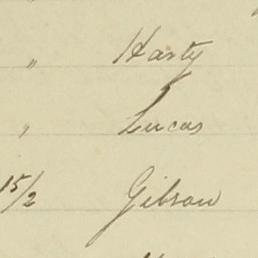 " Harty
" Lucas
15/2 Gibson